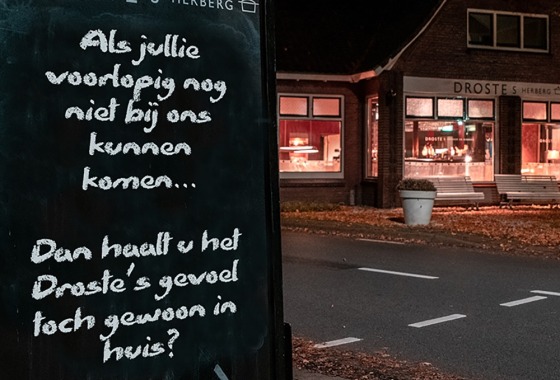 HERBERG
Als jullie
voorlopig nog
niet bij ons
kunnen
komen...
Dan haalt u het
Droste's gevoel
toch gewoon in
huis?
DROSTE'S HERBERG
DROSTE'S